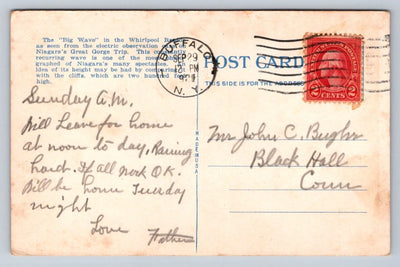 The "Big Wave" in the Whirlpool
as seen from the electric observation
Niagara's Great Gorge Trip. This
recurring wave is one of the most
graphed of Niagara's many
idea of its height may be had by comparing
with the cliffs, which are two hundred
high.
BUFFALO
SEP 29
PM
N.Y.
POST CARD
THIS SIDE IS FOR THE ADDRESS
2 CENTS 2
Sunday A.M.
Will Leave for home
at noon to day, Raining
hard. If all work O.K.
Will be home Tuesday
night
Love
Father
Mr John C.
Black Hall
Conn
MADE